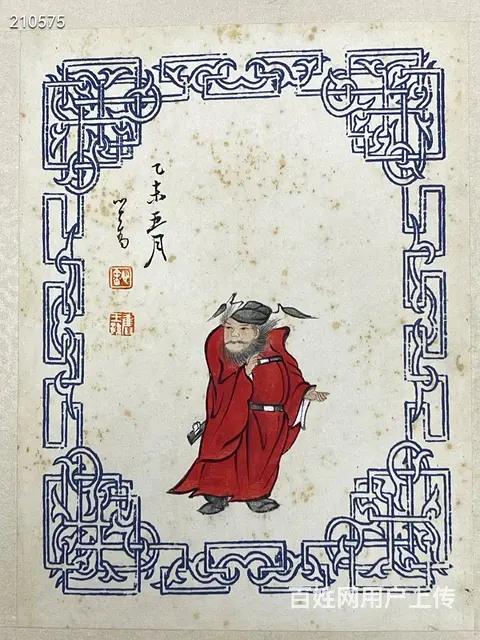 210575
乙未五月
心畬
百姓网用户上传